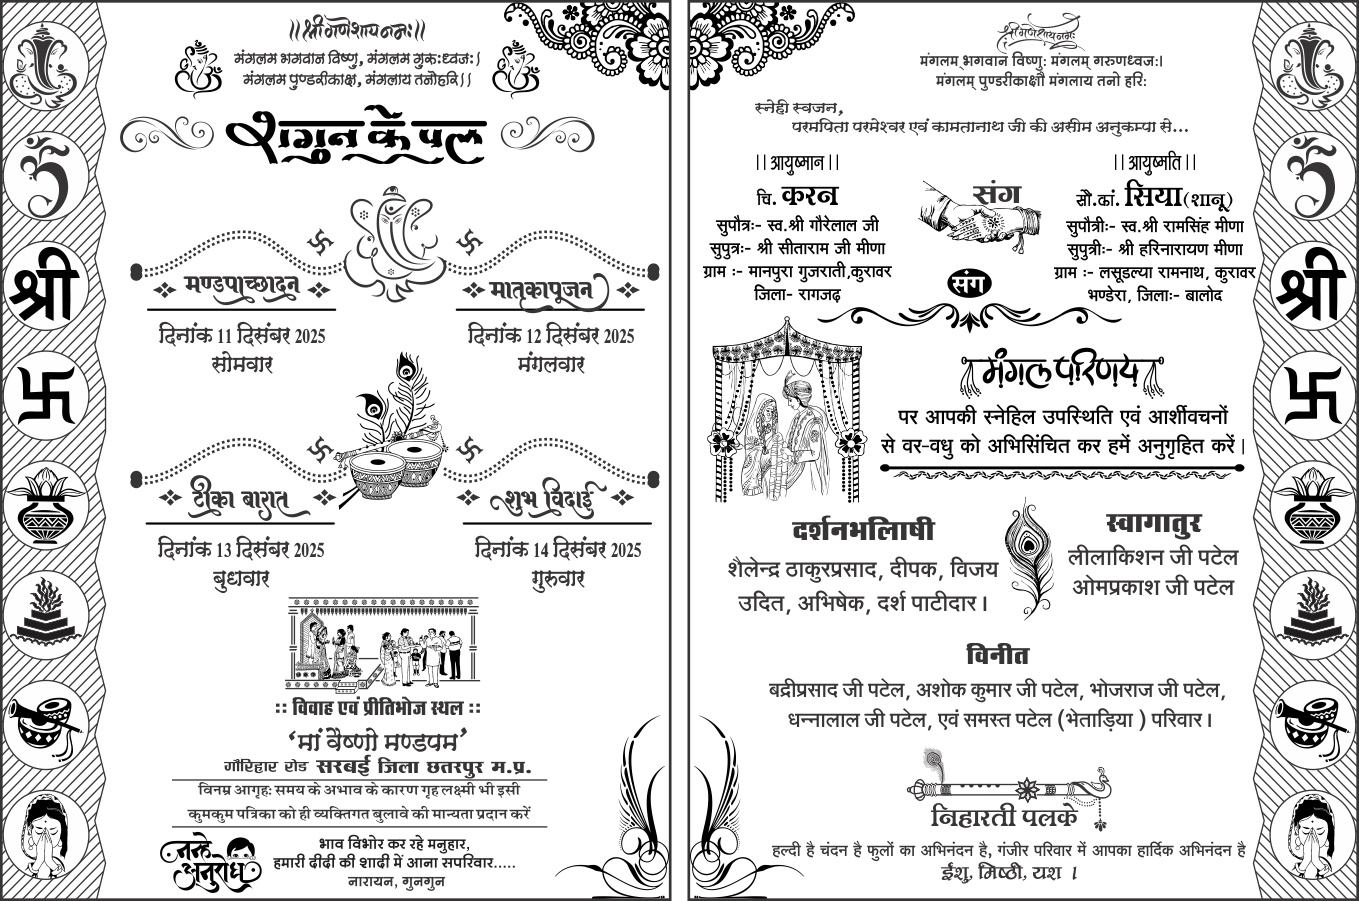 ||श्री गणेशाय नमः||
मंगलम भगवान विष्णु, मंगलम गुरुःध्वजः।
मंगलम पुण्डरीकाक्ष, मंगलाय तनोहरि।।
शगुन के पल
मण्डपाच्छादन
दिनांक 11 दिसंबर 2025
सोमवार
मातृकापूजन
दिनांक 12 दिसंबर 2025
मंगलवार
टीका बारात
दिनांक 13 दिसंबर 2025
बुधवार
शुभ विदाई
दिनांक 14 दिसंबर 2025
गुरुवार
:: विवाह एवं प्रीतिभोज स्थल ::
‘मां वैष्णो मण्डपम’
गौरिहार रोड सरबई जिला छतरपुर म.प्र.
विनम्र आगृहः समय के अभाव के कारण गृह लक्ष्मी भी इसी
कुमकुम पत्रिका को ही व्यक्तिगत बुलावे की मान्यता प्रदान करें
नन्हे अनुरोध
भाव विभोर कर रहे मनुहार,
हमारी दीदी की शादी में आना सपरिवार.....
नारायन, गुनगुन
श्री गणेशाय नमः
मंगलम् भगवान विष्णुः मंगलम् गरुणध्वजः।
मंगलम् पुण्डरीकाक्षौ मंगलाय तनो हरिः
स्नेही स्वजन,
परमपिता परमेश्वर एवं कामतानाथ जी की असीम अनुकम्पा से...
|| आयुष्मान ||
चि. करन
सुपौत्रः- स्व.श्री गौरेलाल जी
सुपुत्रः- श्री सीताराम जी मीणा
ग्राम :- मानपुरा गुजराती,कुरावर
जिला- रागजढ़
संग
संग
|| आयुष्मति ||
सौ.कां. सिया(शानू)
सुपौत्रीः- स्व.श्री रामसिंह मीणा
सुपुत्रीः- श्री हरिनारायण मीणा
ग्राम :- लसूडल्या रामनाथ, कुरावर
भण्डेरा, जिलाः- बालोद
मंगल परिणय
पर आपकी स्नेहिल उपस्थिति एवं आर्शीवचनों
से वर-वधु को अभिसिंचित कर हमें अनुगृहित करें|
दर्शनभलािषी
शैलेन्द्र ठाकुरप्रसाद, दीपक, विजय
उदित, अभिषेक, दर्श पाटीदार।
स्वागातुर
लीलाकिशन जी पटेल
ओमप्रकाश जी पटेल
विनीत
बद्रीप्रसाद जी पटेल, अशोक कुमार जी पटेल, भोजराज जी पटेल,
धन्नालाल जी पटेल, एवं समस्त पटेल (भेताड़िया ) परिवार।
निहारती पलके
हल्दी है चंदन है फुलों का अभिनंदन है, गंजीर परिवार में आपका हार्दिक अभिनंदन है
ईशु, मिष्ठी, यश ।
ॐ
श्री
ॐ
श्री